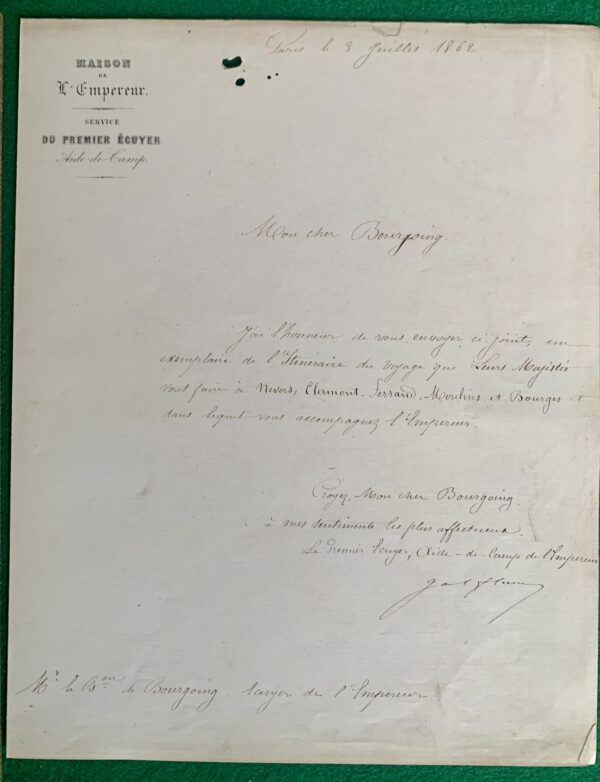 Paris le 3 Juillet 1862
MAISON
DE
L'Empereur.
SERVICE
DU PREMIER ÉCUYER
Aide-de-Camp.
Mon cher Bourgoing.
J'ai l'honneur de vous envoyer ci joint, un
exemplaire de l'Itinéraire du Voyage que Leurs Majestés
vont faire à Nevers, Clermont-Ferrand, Moulins et Bourges et
dans lequel vous accompagnez l'Empereur.
Croyez, Mon cher Bourgoing.
à mes sentiments les plus affectueux.
Le Premier Ecuyer, Aide-de-Camp de l'Empereur
Mr. le Bon. de Bourgoing. Ecuyer de l'Empereur